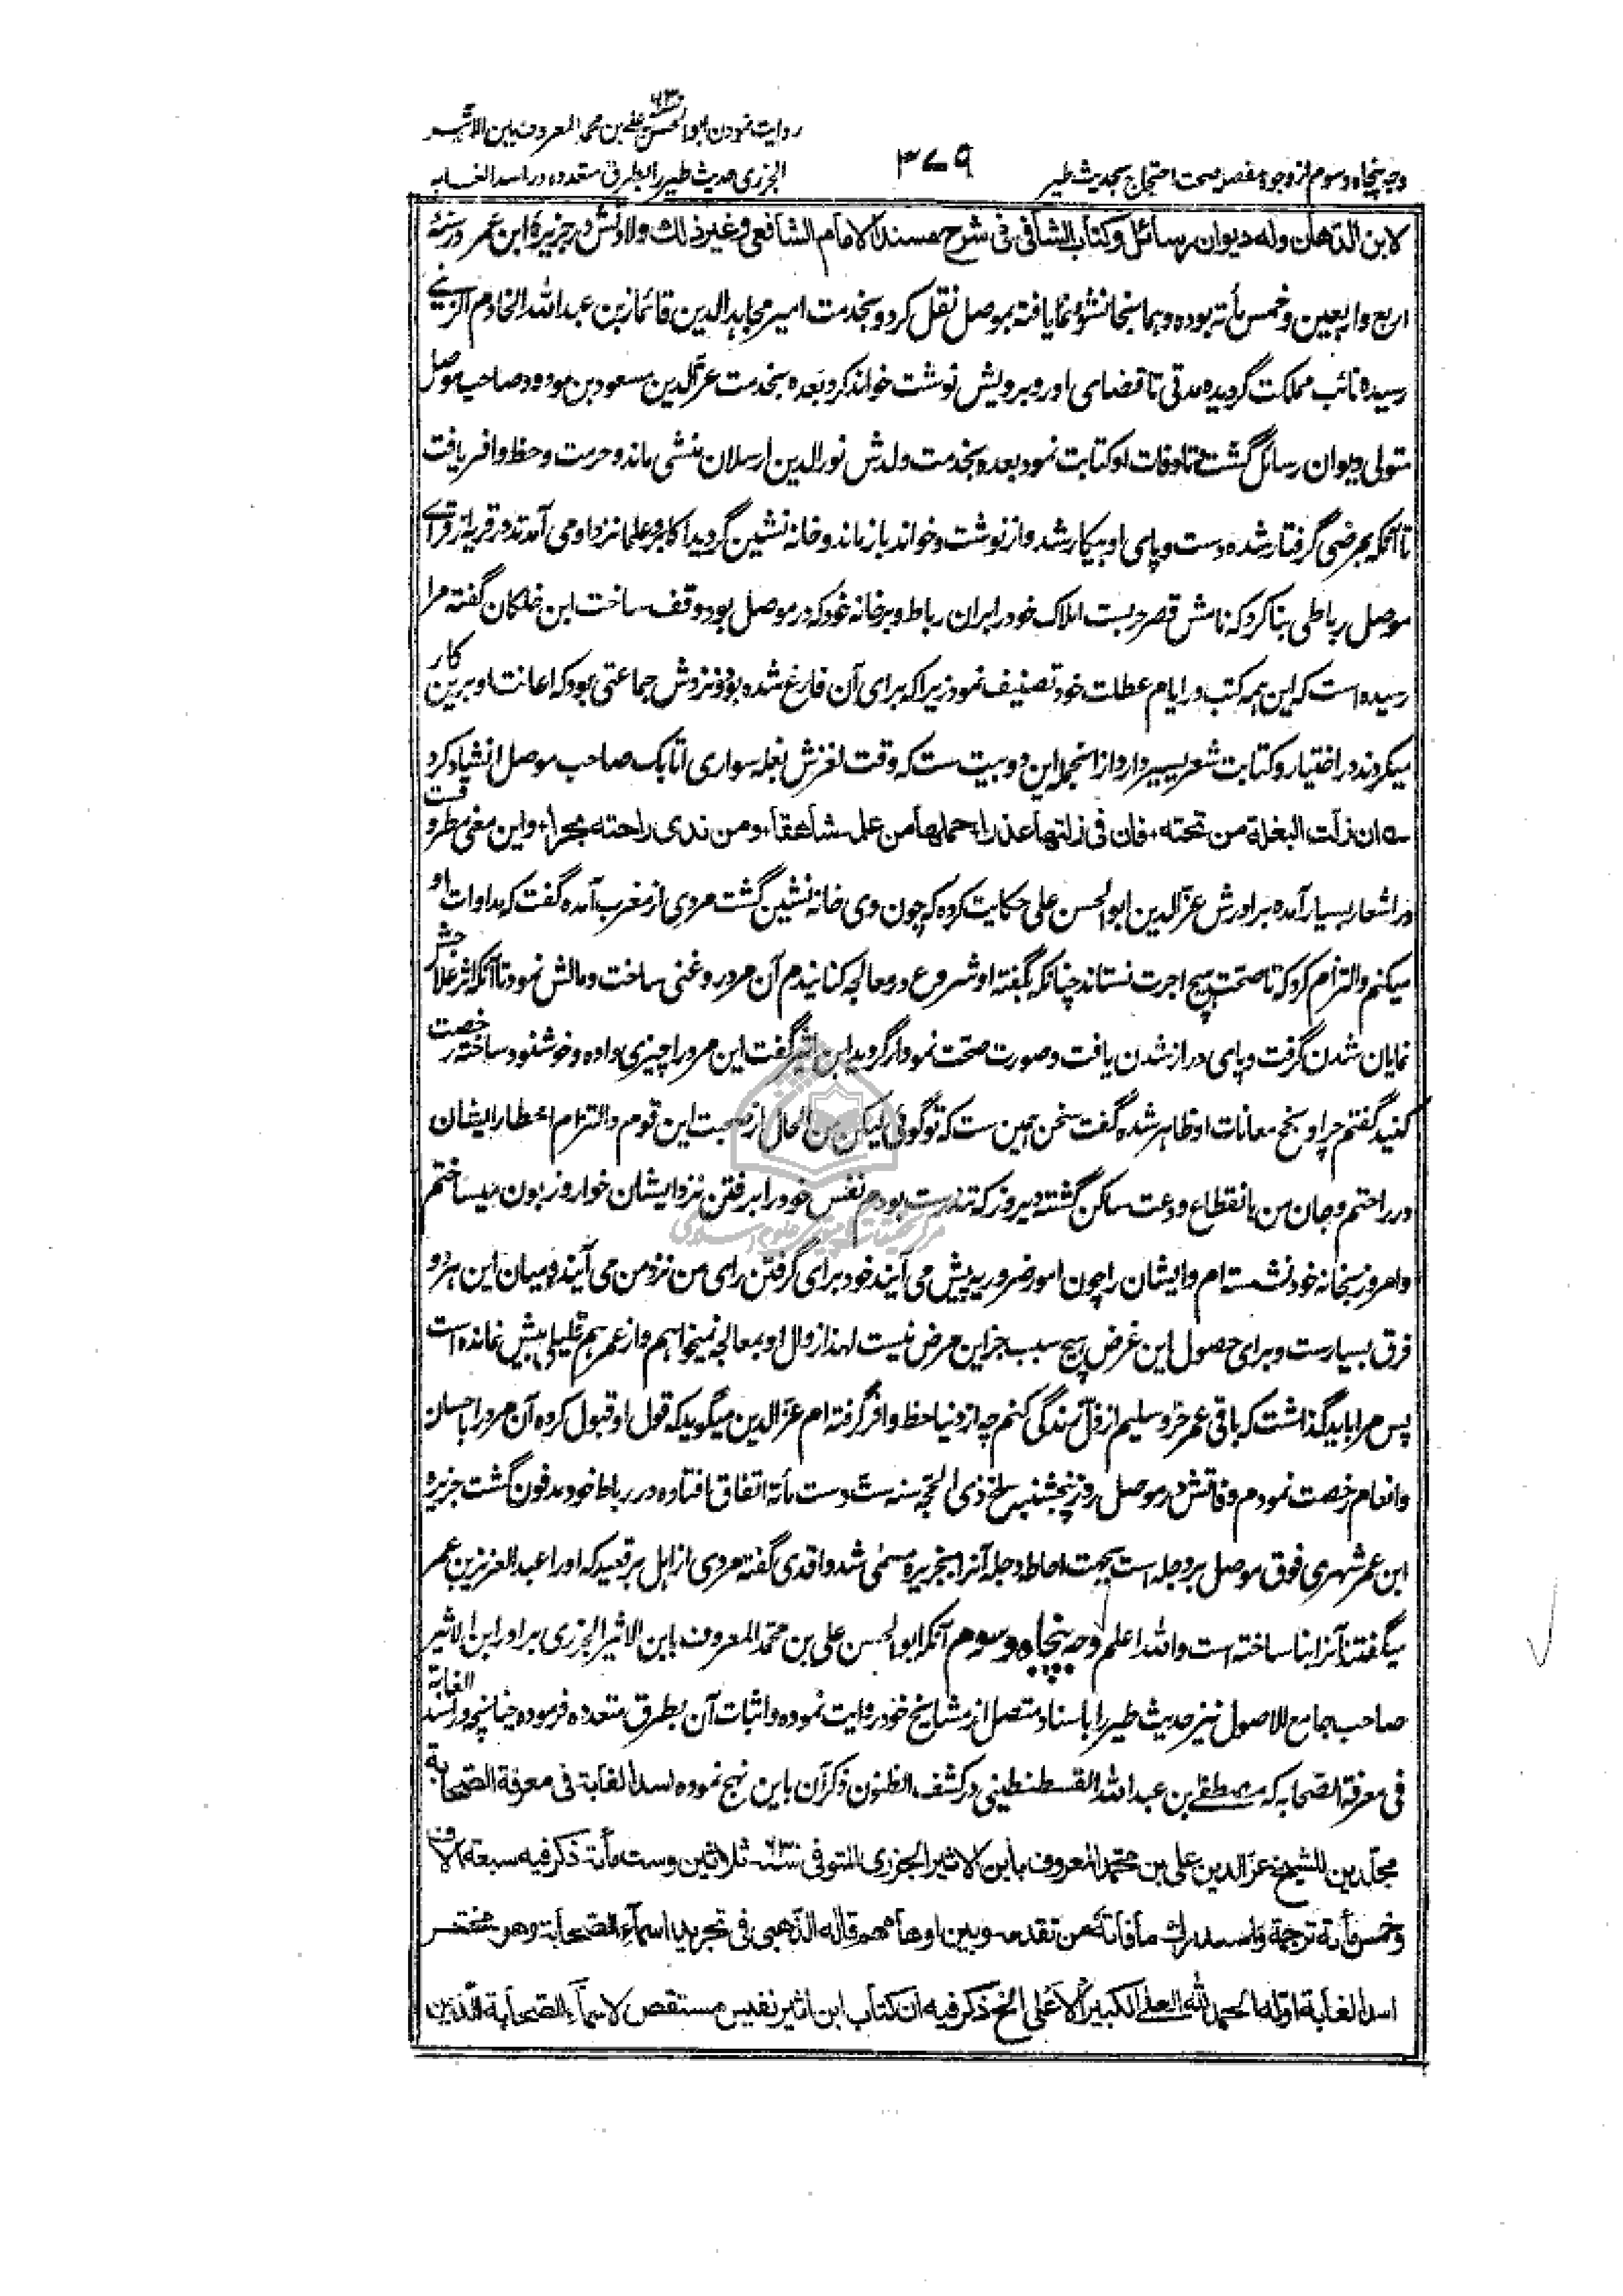 وجه پنجاه و سوم از وجوه مفصل صحت احتجاج بحدیث طیر
۳۷۹
روایت نمودن ابوالحسن علی بن محمد المعروف بابن الاثیر
الجزری حدیث طیر را بطرق متعدده در اسد الغابه
لابن الدهان وله دیوان رسائل وکتاب الشافی فی شرح مسند الامام الشافعی وغیر ذلک ولادتش در جزیرهٔ ابن عمر در سنهٔ
اربع واربعین وخمس مأته بوده وهمانجا نشؤ و نما یافته بموصل نقل کرد و بخدمت امیر مجاهد الدین قائماز بن عبد الله الخادم الزینی
رسیده نائب مملکت گردیده مدتی تا قضای او رو برویش نوشت خواند کرد بعده بخدمت عز الدین مسعود بن مودود صاحب موصل
متولی دیوان رسائل گشت تا وفات او کتابت نمود بعده بخدمت ولدش نور الدین ارسلان منشی ماند و حرمت و حظ وافر یافت
تا آنکه بمرضی گرفتار شده دست و پای او بیکار شد و از نوشت و خواند باز ماند و خانه نشین گردید اکابر و علما نزد او می آمدند در قریه از قرای
موصل رباطی بنا کرد که نامش قصر حربست املاک خود را بران رباط و بر خانه خود که در موصل بود وقف ساخت ابن خلکان گفته مرا
رسیده است که این همه کتب در ایام عطلت خود تصنیف نمود زیرا که برای آن فارغ شده بود و نزدش جماعتی بود که اعانت او برین کار
میکردند در اختیار و کتابت شعر یسیر دارد از انجمله این دو بیت ست که وقت لغزش بغله سواری اتابک صاحب موصل انشاد کرد
ان زلت البغلة من تحته، فان فی زلتها عذرا، حملها من علمه شاهقا، ومن ندی راحته بحرا، واین معنی مطروقست
در اشعار بسیار آمده برادرش عز الدین ابو الحسن علی حکایت کرده که چون وی خانه نشین گشت مردی از مغرب آمده گفت که مداوات او
میکنم والتزام کرد که تا صحت هیچ اجرت نستاند چنانکه بگفته او شروع در معالجه کنانیدم آن مرد روغنی ساخت و مالش نمود تا آنکه اثر علاجش
نمایان شدن گرفت و پای دراز شدن یافت و صورت صحت نمودار گردید ابن اثیر گفت این مرد را چیزی داده و خوشنود ساخته رخصت
کنید گفتم چرا و نجح معانات او ظاهر شده گفت سخن همین ست که تو گوئی لیکن من الحال از صحبت این قوم والتزام اخطار ایشان
در راحتم و جان من بانقطاع و دعت ساکن گشته دیروز که تندرست بودم نفس خود را برفتن نزد ایشان خوار و زبون میساختم
وامروز بخانه خود نشسته ام وایشان را چون امور ضروریه پیش می آیند خود برای گرفتن رای من نزد من می آیند و میان این هر دو
فرق بسیارست و برای حصول این غرض هیچ سبب جز این مرض نیست لهذا زوال او بمعالجه نمیخواهم و از عمر هم قلیلی بیش نمانده است
پس مرا باید گذاشت که باقی عمر حر و سلیم از ذل زندگی کنم چه از دنیا حظ وافر گرفته ام عز الدین میگوید که قول او قبول کرده آن مرد را باحسان
وانعام رخصت نمودم وفاتش در موصل روز پنجشنبه سلخ ذی الحجه سنه ست وست مأته اتفاق افتاده در رباط خود مدفون گشت جزیرهٔ
ابن عمر شهری فوق موصل بر دجله است بجهت احاطه دجله آنرا بجزیره مسمی شد واقدی گفته مردی از اهل برقعید که او را عبد العزیز بن عمر
میگفتند آنرا بنا ساخته است والله اعلم وجه پنجاه و سوم آنکه ابو الحسن علی بن محمد المعروف بابن الاثیر الجزری برادر ابن الاثیر
صاحب جامع الاصول نیز حدیث طیر را باسناد متصل از مشایخ خود روایت نموده واثبات آن بطرق متعدده فرموده چنانچه در اسد الغابة
فی معرفة الصحابه که مصطفی بن عبد الله القسطنطینی در کشف الظنون ذکر آن باین نهج نموده اسد الغابة فی معرفة الصحابة
مجلدین للشیخ عز الدین علی بن محمد المعروف بابن الاثیر الجزری المتوفی سنة ثلاثین وست مأة ذکر فیه سبعة الاف
وخمس مأة ترجمة واستدرک ما فاته من تقدمه وبین اوهامهم قاله الذهبی فی تجرید اسماء الصحابة وهو مختصر
اسد الغابة اوله الحمد لله العلی الکبیر الاعلی الخ ذکر فیه ان کتاب ابن اثیر نفیس مستقص لاسماء الصحابة الذین
مرکز تحقیقات کامپیوتری علوم اسلامی